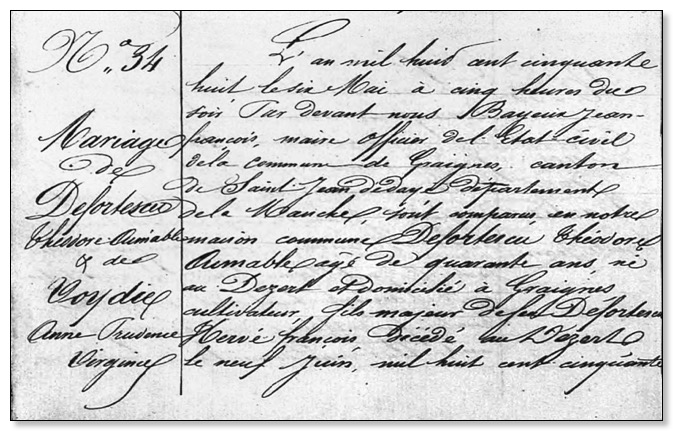 N.° 34
Mariage
de
Defortescu
théodore Aimable
& de
Voydie
Anne Prudence
Virginie
L'an mil huit cent cinquante
huit le six Mai à cinq heures du
soir Par devant nous Bayeux Jean-
françois, maire officier de l'Etat-civil
de la commune de Graignes, canton
de Saint Jean de daye département
de la Manche, sont comparus en notre
maison commune, Defortescu théodore
Aimable, âgé de quarante ans, né
au Dezert et domicilié à Graignes
cultivateur, fils majeur de feu Defortescu
Hervé françois décédé au Dezert
le neuf Juin, mil huit cent cinquante